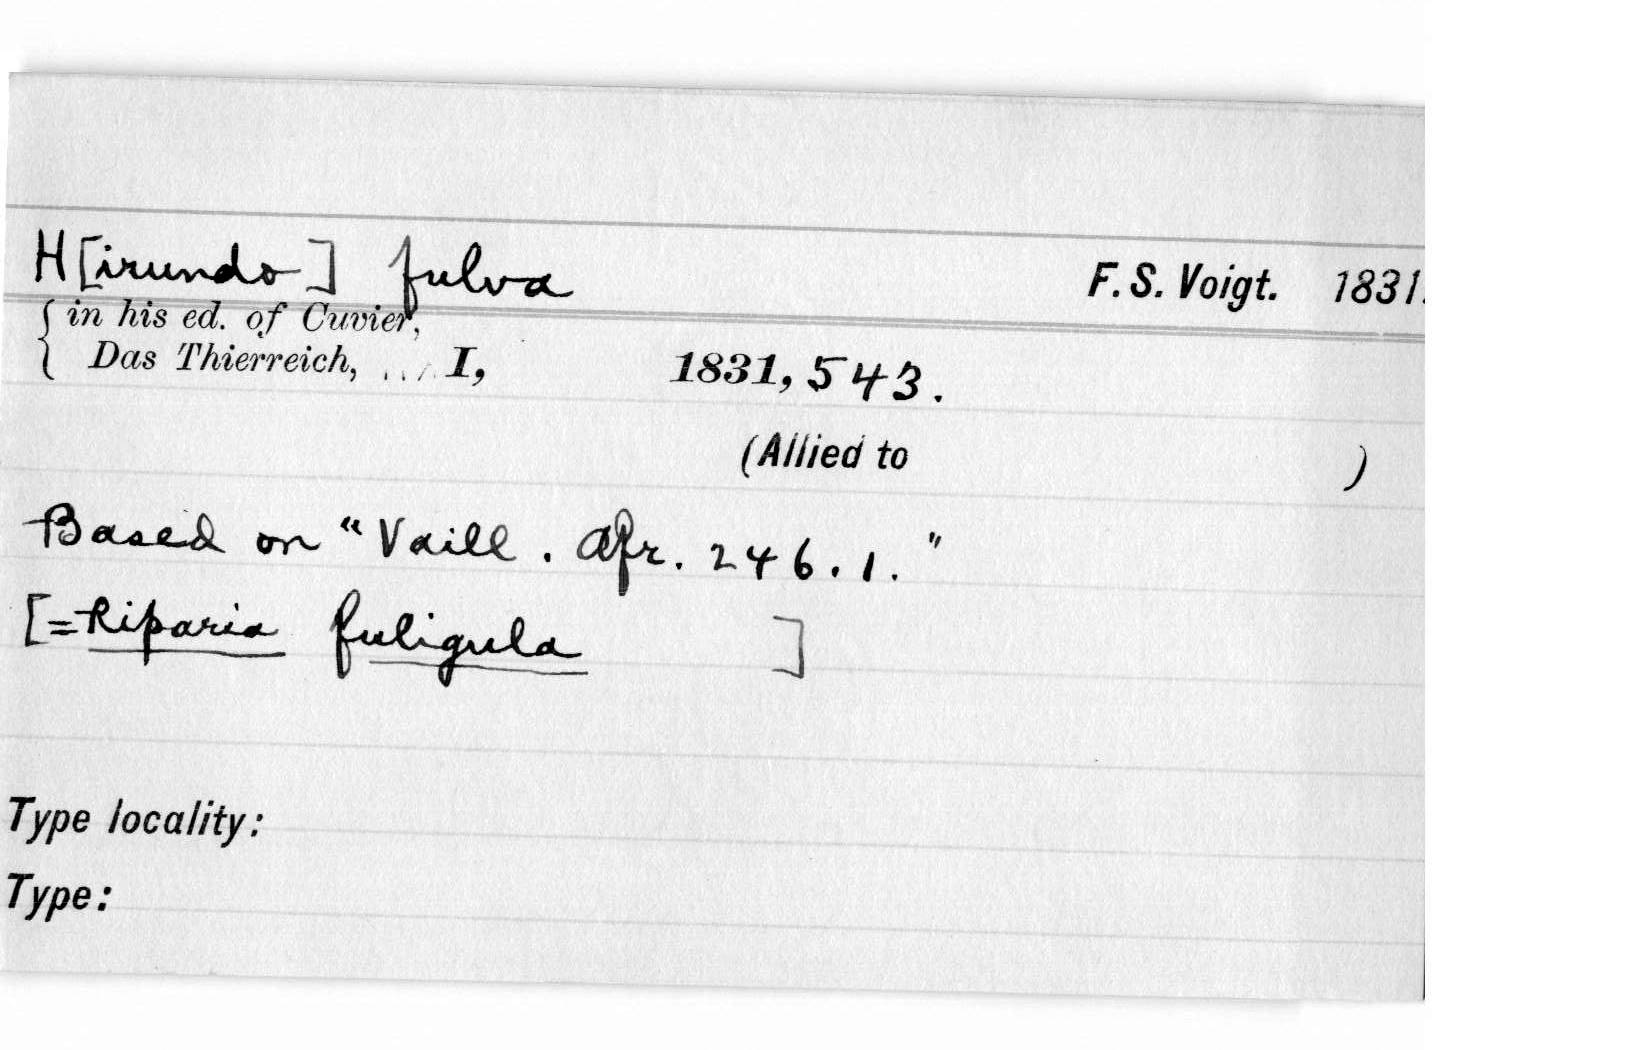 H[irundo] fulva F. S. Voigt. 1831.
{ in his ed. of Cuvier,
{ Das Thierreich, I, 1831, 543.
(Allied to )
Based on "Vaill. Afr. 246.1."
[=Riparia fuligula ]
Type locality:
Type: